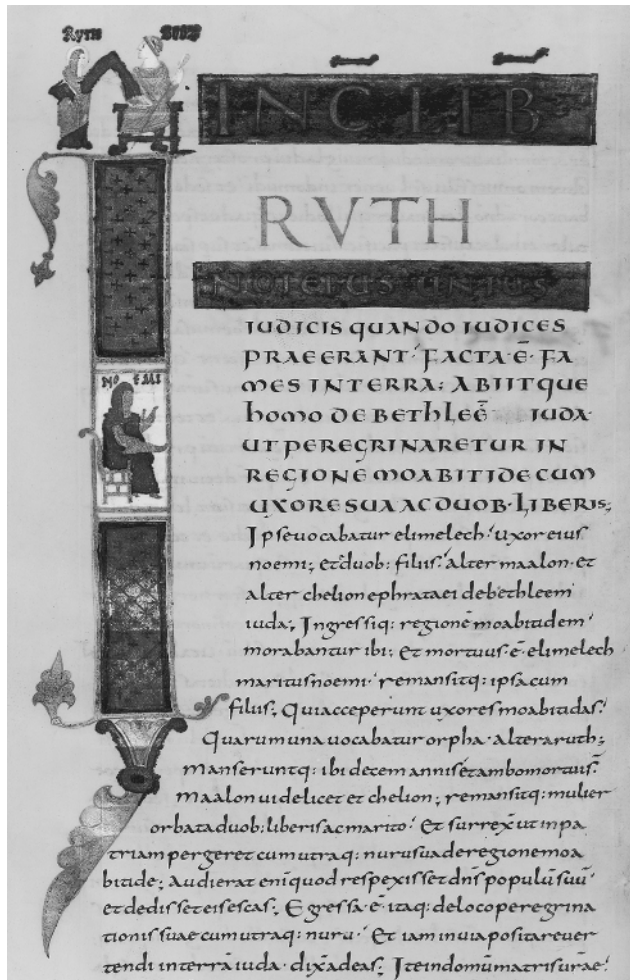 RUTH BOOZ
INC LIB
RVTH
IN DIEBUS UNIUS
NOEMI
IUDICIS QUANDO IUDICES
PRAEERANT· FACTA·Ē· FA
MES IN TERRA: ABIITQUE
hOMO DE BEThLEĒ IUDA·
UT PEREGRINARETUR IN
REGIONE MOABITIDE CUM
UXORE SUA AC DUOB· LIBERIS;
Ipse vocabatur elimelech· uxor eius
noemi; et duob: filiis· alter maalon· et
alter chelion ephrataei de bethleem
iuda; Ingressiq: regionē moabitidem
morabantur ibi; Et mortuus·ē· elimelech
maritus noemi· remansitq: ipsa cum
filiis; Qui acceperunt uxores moabitidas·
Quarum una uocabatur orpha· altera ruth;
Manseruntq: ibi decem annis· et ambo mortui s̄·
Maalon uidelicet et chelion; remansitq: mulier
orbata duob: liberis ac marito· Et surrex̄ ut in pa
triam pergeret cum utraq: nuru sua de regione moa
bitide; Audierat enī quod respexisset dn̄s populū suū
et dedisset eis escas; Egressa·ē· itaq: de loco peregrina
tionis suae cum utraq: nuru· Et iam in uia posita reuer
tendi in terrā iuda· dix̄ ad eas; Ite in domū matris urae·